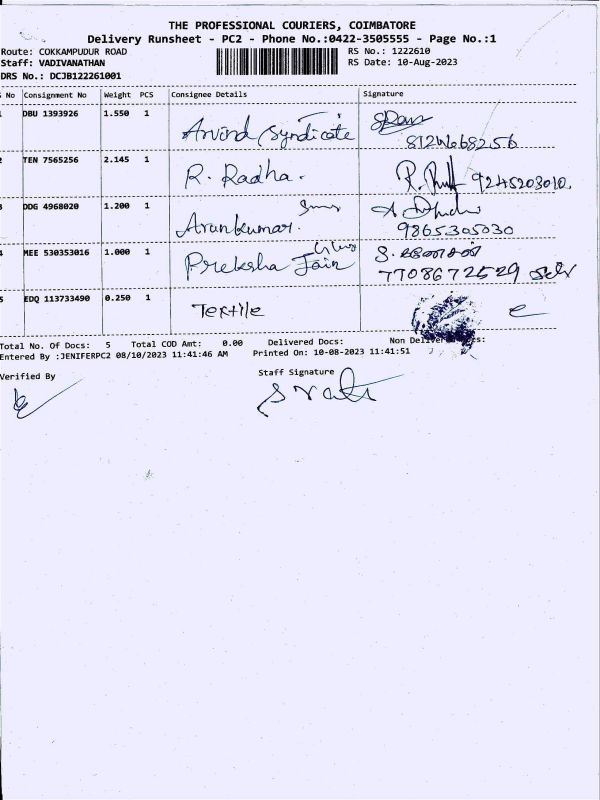 THE PROFESSIONAL COURIERS, COIMBATORE
Delivery Runsheet - PC2 - Phone No.:0422-3505555 - Page No.:1
Route: COKKAMPUDUR ROAD
RS No.: 1222610
Staff: VADIVANATHAN
RS Date: 10-Aug-2023
DRS No.: DCJB122261001
No Consignment No Weight PCS Consignee Details Signature
DBU 1393926 1.550 1 Arvind Syndicate
TEN 7565256 2.145 1 R. Radha. 9245203010.
DDG 4968020 1.200 1 Arunkumar. 9865305030
MEE 530353016 1.000 1 Preksha Jain 7708672529
5 EDQ 113733490 0.250 1 Textile
Total No. Of Docs: 5 Total COD Amt: 0.00 Delivered Docs: Non
Entered By :JENIFERPC2 08/10/2023 11:41:46 AM Printed On: 10-08-2023 11:41:51
Verified By
Staff Signature